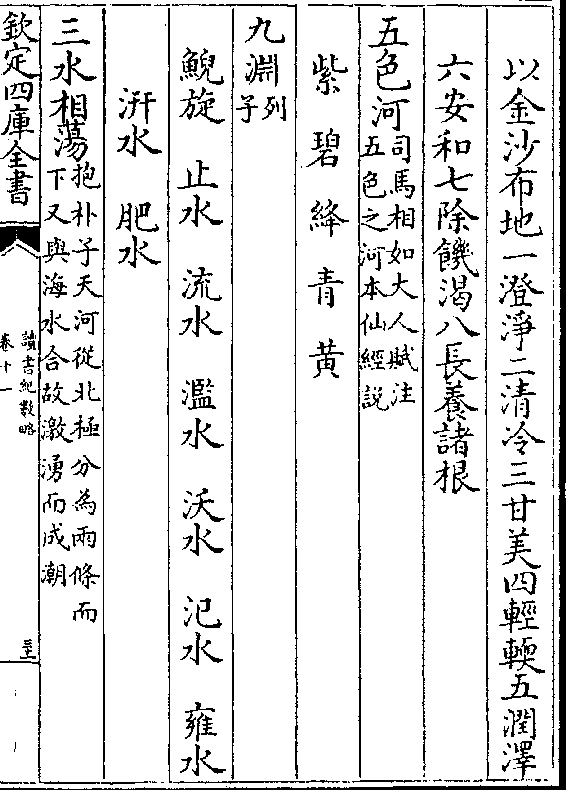 以金沙布地一澄淨二清冷三甘美四輕輭五潤澤
六安和七除饑渴八長養諸根
五色河司馬相如大人賦注
五色之河本仙經説
紫 碧 絳 青 黄
九淵列
子
鯢旋 止水 流水 濫水 沃水 氿水 雍水
汧水 肥水
三水相蕩抱朴子天河從北極分為兩條而
下又與海水合故激湧而成潮
欽定四庫全書
讀書紀數略
卷十一